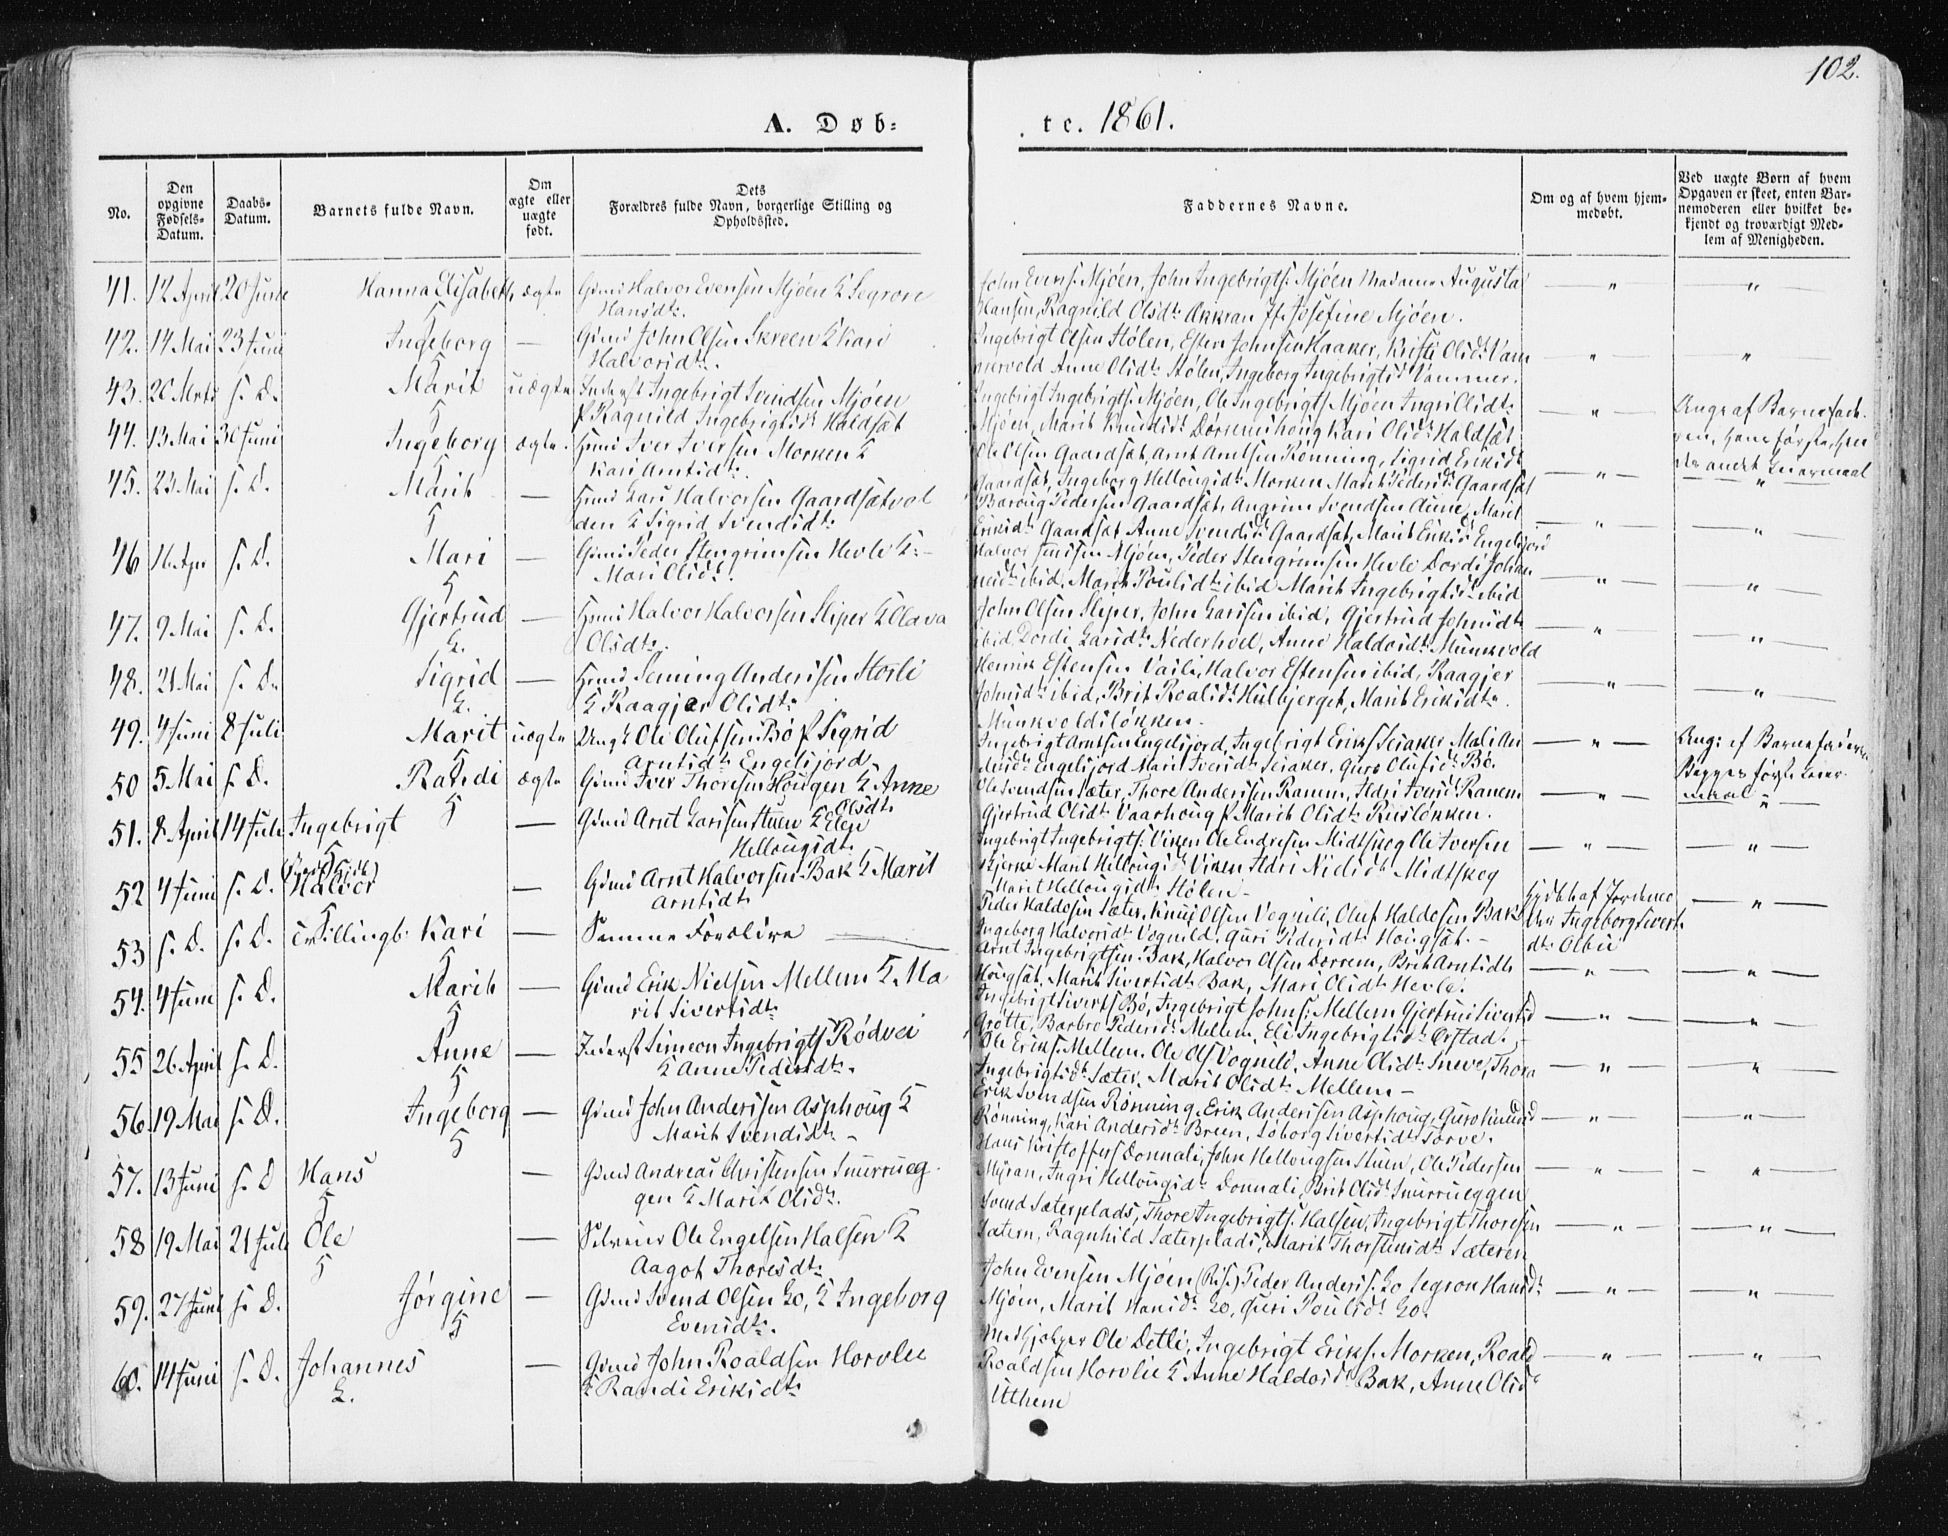 102.
A. Døb-
te. 1861.
No.
Den opgivne Fødsels-Datum.
Daabs-Datum.
Barnets fulde Navn.
Om ægte eller uægte født.
Dets Forældres fulde Navn, borgerlige Stilling og Opholdssted.
Faddernes Navne.
Om og af hvem hjemmedøbt.
Ved uægte Børn af hvem Opgaven er skeet, enten Barnemoderen eller hvilket bekjendt og troværdigt Medlem af Menigheden.
41. 12 April 20 June Hanna Elisabeth ægte Gmd Halvor Evensen Mjøen & Segron
Hansdt.
John Evens. Mjøen, John Ingebrigts. Mjøen Madame Augusta
Hansen, Ragnild Olsdt. Josefine Mjøen.
42. 14 Mai 23 Juni Ingeborg — Gmd John Olsen Skreen & Kari
Halvorsdt.
Ingebrigt Olsen Stølen, Esten Johnsen Haaker, Kristi Olsdt. Vam
mervold Anne Olsdt. Stølen, Ingeborg Ingebrigtsdt Vammer.
43. 20 Mrts s. D. Marit uægte Inderst Ingebrigt Svendsen Mjøen
P. Ragnild Ingebrigtsdt Haldsæt
Ingebrigt Ingebrigts. Mjøen, Ole Ingebrigts. Mjøen Ingri Olsdt.
Mjøen, Marit Knudsdt. Kari Olsdt. Haldsæt
Ang. af Barnefade-
ren, hans første, hen-
des andet Leiermaal
44. 13 Mai 30 Juni Ingeborg ægte. Gmd Iver Iversen Morken &
Kari Arntsdt.
Ole Olsen Gaardsæt, Arnt Arntsen Rønning, Sigrid Eriksdt
Gaardsæt, Ingeborg Hellougsdt. Morken Marit Pedersdt. Gaardsæt
45. 23 Mai s. D. Marit — Gmd Lars Halvorsen Gaardsætvol
den & Sigrid Svendsdt.
Baroug Pedersen Gaardsæt, Angrim Svendsen Aune, Marit
Eriksdt. Gaardsæt Anne Svendsdt. Gaardsæt, Marit Eriksdt Engelsjord
46 16 Apr s. D. Mari — Gmd Peder Stengrimsen Hevle &
Mari Olsdt.
Halvor Jensen Mjøen, Peder Stengrimsen Hevle Dordi Johan
nesdt. ibid, Marit Poulsdt. ibid Marit Ingebrigtsdt. ibid
47. 9 Mai s. D. Gjertrud — Gmd Halvor Halvorsen Sliper & Olava
Olsdt.
John Olsen Sliper, John Larssen ibid, Gjertrud Johnsdt
ibid, Dordi Larsdt. Nederhoel, Anne Haldosdt. Munkvold
48. 21 Mai s. D. Sigrid — Gmd Seming Andersen Storli
& Raagjer Olsdt.
Henrik Estensen Vaili, Halvor Estensen ibid, Raagjer
Johnsdt. ibid, Brit Roalsdt. Hulbjerget, Marit Eriksdt.
Munkvoldsløkken.
49. 4 Juni 8 Juli Marit uægte Ungk. Ole Olufsen Bø P. Sigrid
Arntsdt. Engelsjord.
Ingebrigt Arntsen Engelsjord, Ingebrigt Eriks. Seiaker Mali An
dersdt. Engelsjord Marit Iversdt. Seiaker, Guro Olufsdt. Bø.
Ang: af Barnefaderen
Begges første Leier-
maal
50 5 Mai s. D. Randi ægte Gmd Iver Thoresen Hougen & Anne
Olsdt.
Ole Svendsen Sæter, Thore Andersen Ramm, Ildri Iversdt. Ramm
Gjertrud Olsdt. Vaarhoug P. Marit Olsdt. Risløkken.
51. 8 April 14 Juli Ingebrigt — Gmd Arnt Larssen Stuen & Elen
Hellougsdt.
Ingebrigt Ingebrigts. Viken Ole Endresen Midtskog Ole Iversen
Bjerke Marit Hellougsdt Viken Ildri Nielsdt Midtskog
Marit Hellougsdt. Stølen -
52 4 Juni s. D. Halvor — Gmd Arnt Halvorsen Bak & Marit
Arntsdt.
Peder Haldosen Sæter, Knud Olsen Vognild, Oluf Haldosen Bak
Ingeborg Halvorsdt Vognild, Guri Pedersdt. Hougsæt. -
Hjdbt. af Jordemo
der Ingeborg Sivert
dt. Olbu
53 s. D. s. D. Tvillingb. Kari — Samme Forældre
Arnt Ingebrigtsen Bak, Halvor Olsen Dørrem, Brit Arntsdt.
Hougsæt, Marit Sivertsdt. Bak, Mari Olsdt. Hevle.
54. 4 Juni s. D. Marit — Gmd Erik Nielsen Mellem & Ma
rit Sivertsdt.
Ingebrigt Siverts. Bø, Ingebrigt Johns. Mellem Gjertrud Sivertsd
Grøtte, Barbro Pedersdt. Mellem, Eli Ingebrigtsdt. Ørstad.
55 26 April s. D. Anne — Inderst Simeon Ingebrigts. Rødvei
& Anne Pedersdt.
Ole Eriks. Mellem. Ole Ols. Vognild, Anne Olsdt. Sneve, Thora
Ingebrigtsdt. Sæter, Marit Olsdt. Mellem -
56. 19 Mai s. D. Ingeborg — Gmd John Andersen Asphoug &
Marit Svendsdt. -
Erik Svendsen Rønning, Erik Andersen Asphoug, Guro Knudsd
Rønning, Kari Andersdt. Breen, Søborg Sivertsdt. Torve.
57. 13 Juni s. D Hans — Gmd Andreas Christensen Snurrueg
gen & Marit Olsdt.
Hans Kristoffers. Donnali, John Hellougsen Stuen, Ole Pedersen
Myran, Ingri Hellougsdt. Donnali, Brit Olsdt. Snurrueggen
58 19 Mai 21 Juli Ole — Selveier Ole Engelsen Halsen &
Aagot Thoresdt.
Svend Sæterplads, Thore Ingebrigts. Halsen, Ingebrigt Thoresen
Sætern, Ragnhild Sæterplads, Marit Thorstensdt. Sæteren
59. 27 Juni s. D. Jørgine — Gmd Svend Olsen Lo, & Ingeborg
Evensdt.
John Evensen Mjøen (Ris.) Peder Anders. Lo Segron Hansdt.
Mjøen, Marit Hansdt. Lo, Guri Poulsdt. Lo.
60. 14 Juni s. D. Johannes — Gmd John Roaldsen Horvlie
& Randi Eriksdt.
Ole Detli, Ingebrigt Eriks. Morken, Roald
Roaldsen Horvlie & Anne Haldosdt. Bak, Anne Olsdt
Utthem